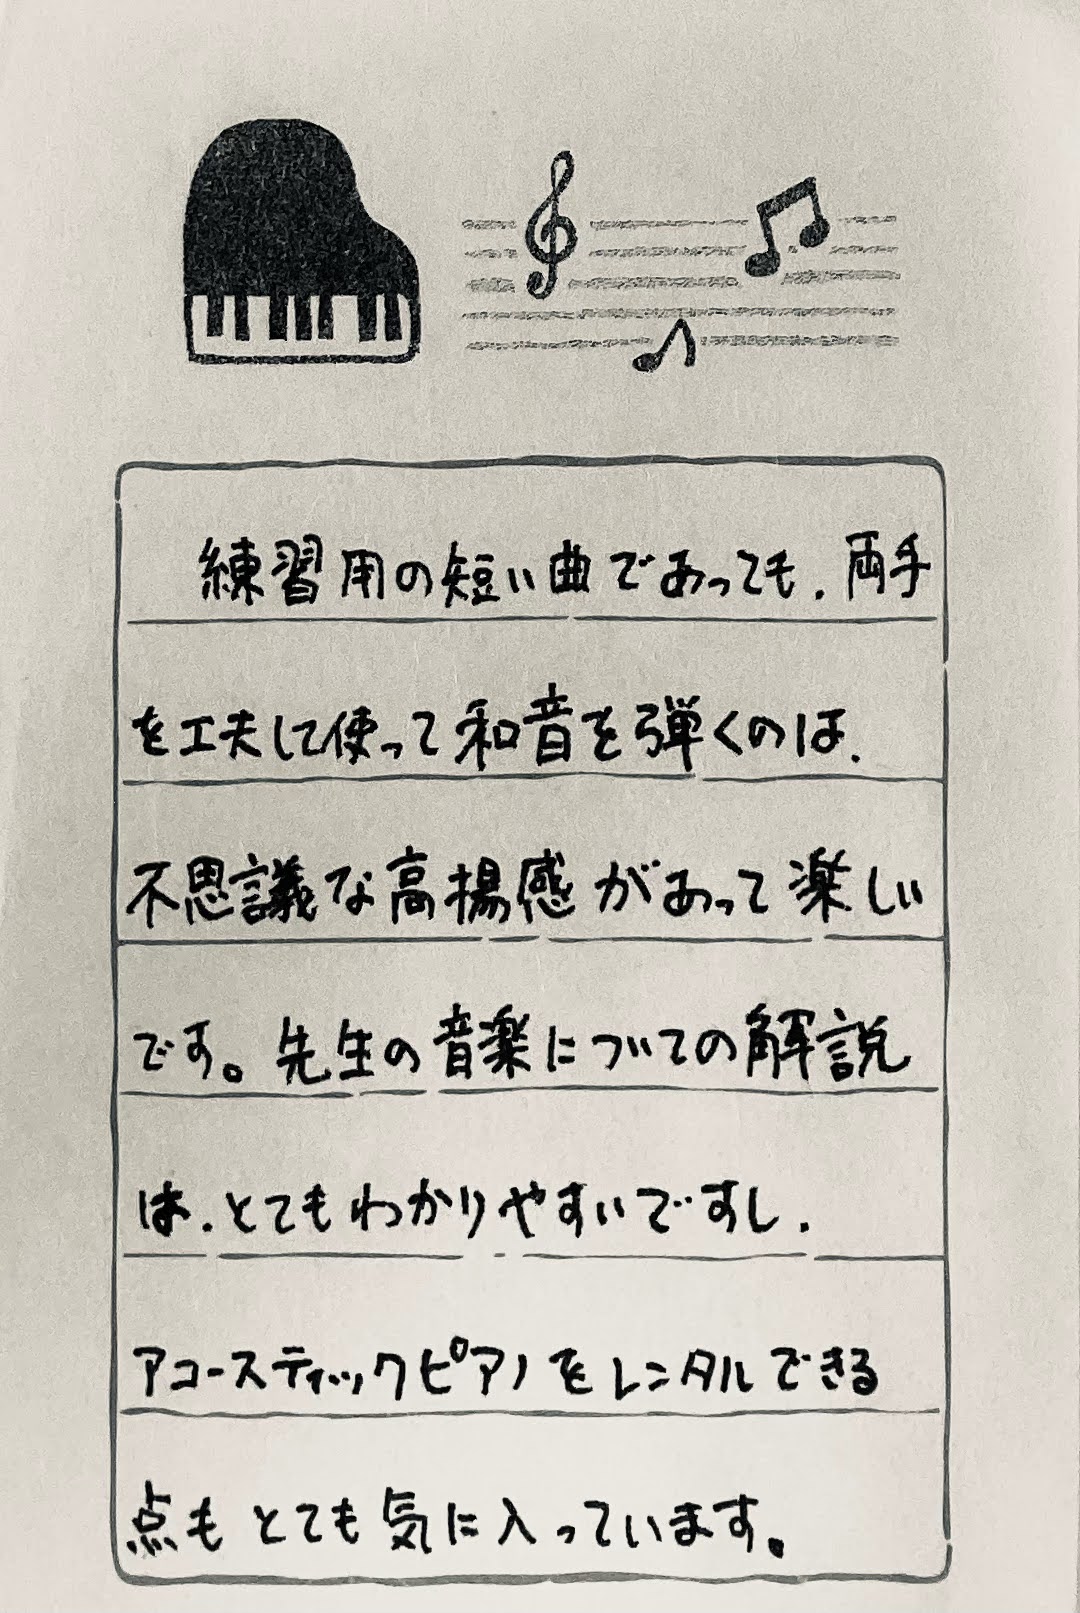 練習用の短い曲であっても、両手
を工夫して使って和音を弾くのは、
不思議な高揚感があって楽しい
です。先生の音楽についての解説
は、とてもわかりやすいですし、
アコースティックピアノをレンタルできる
点もとても気に入っています。